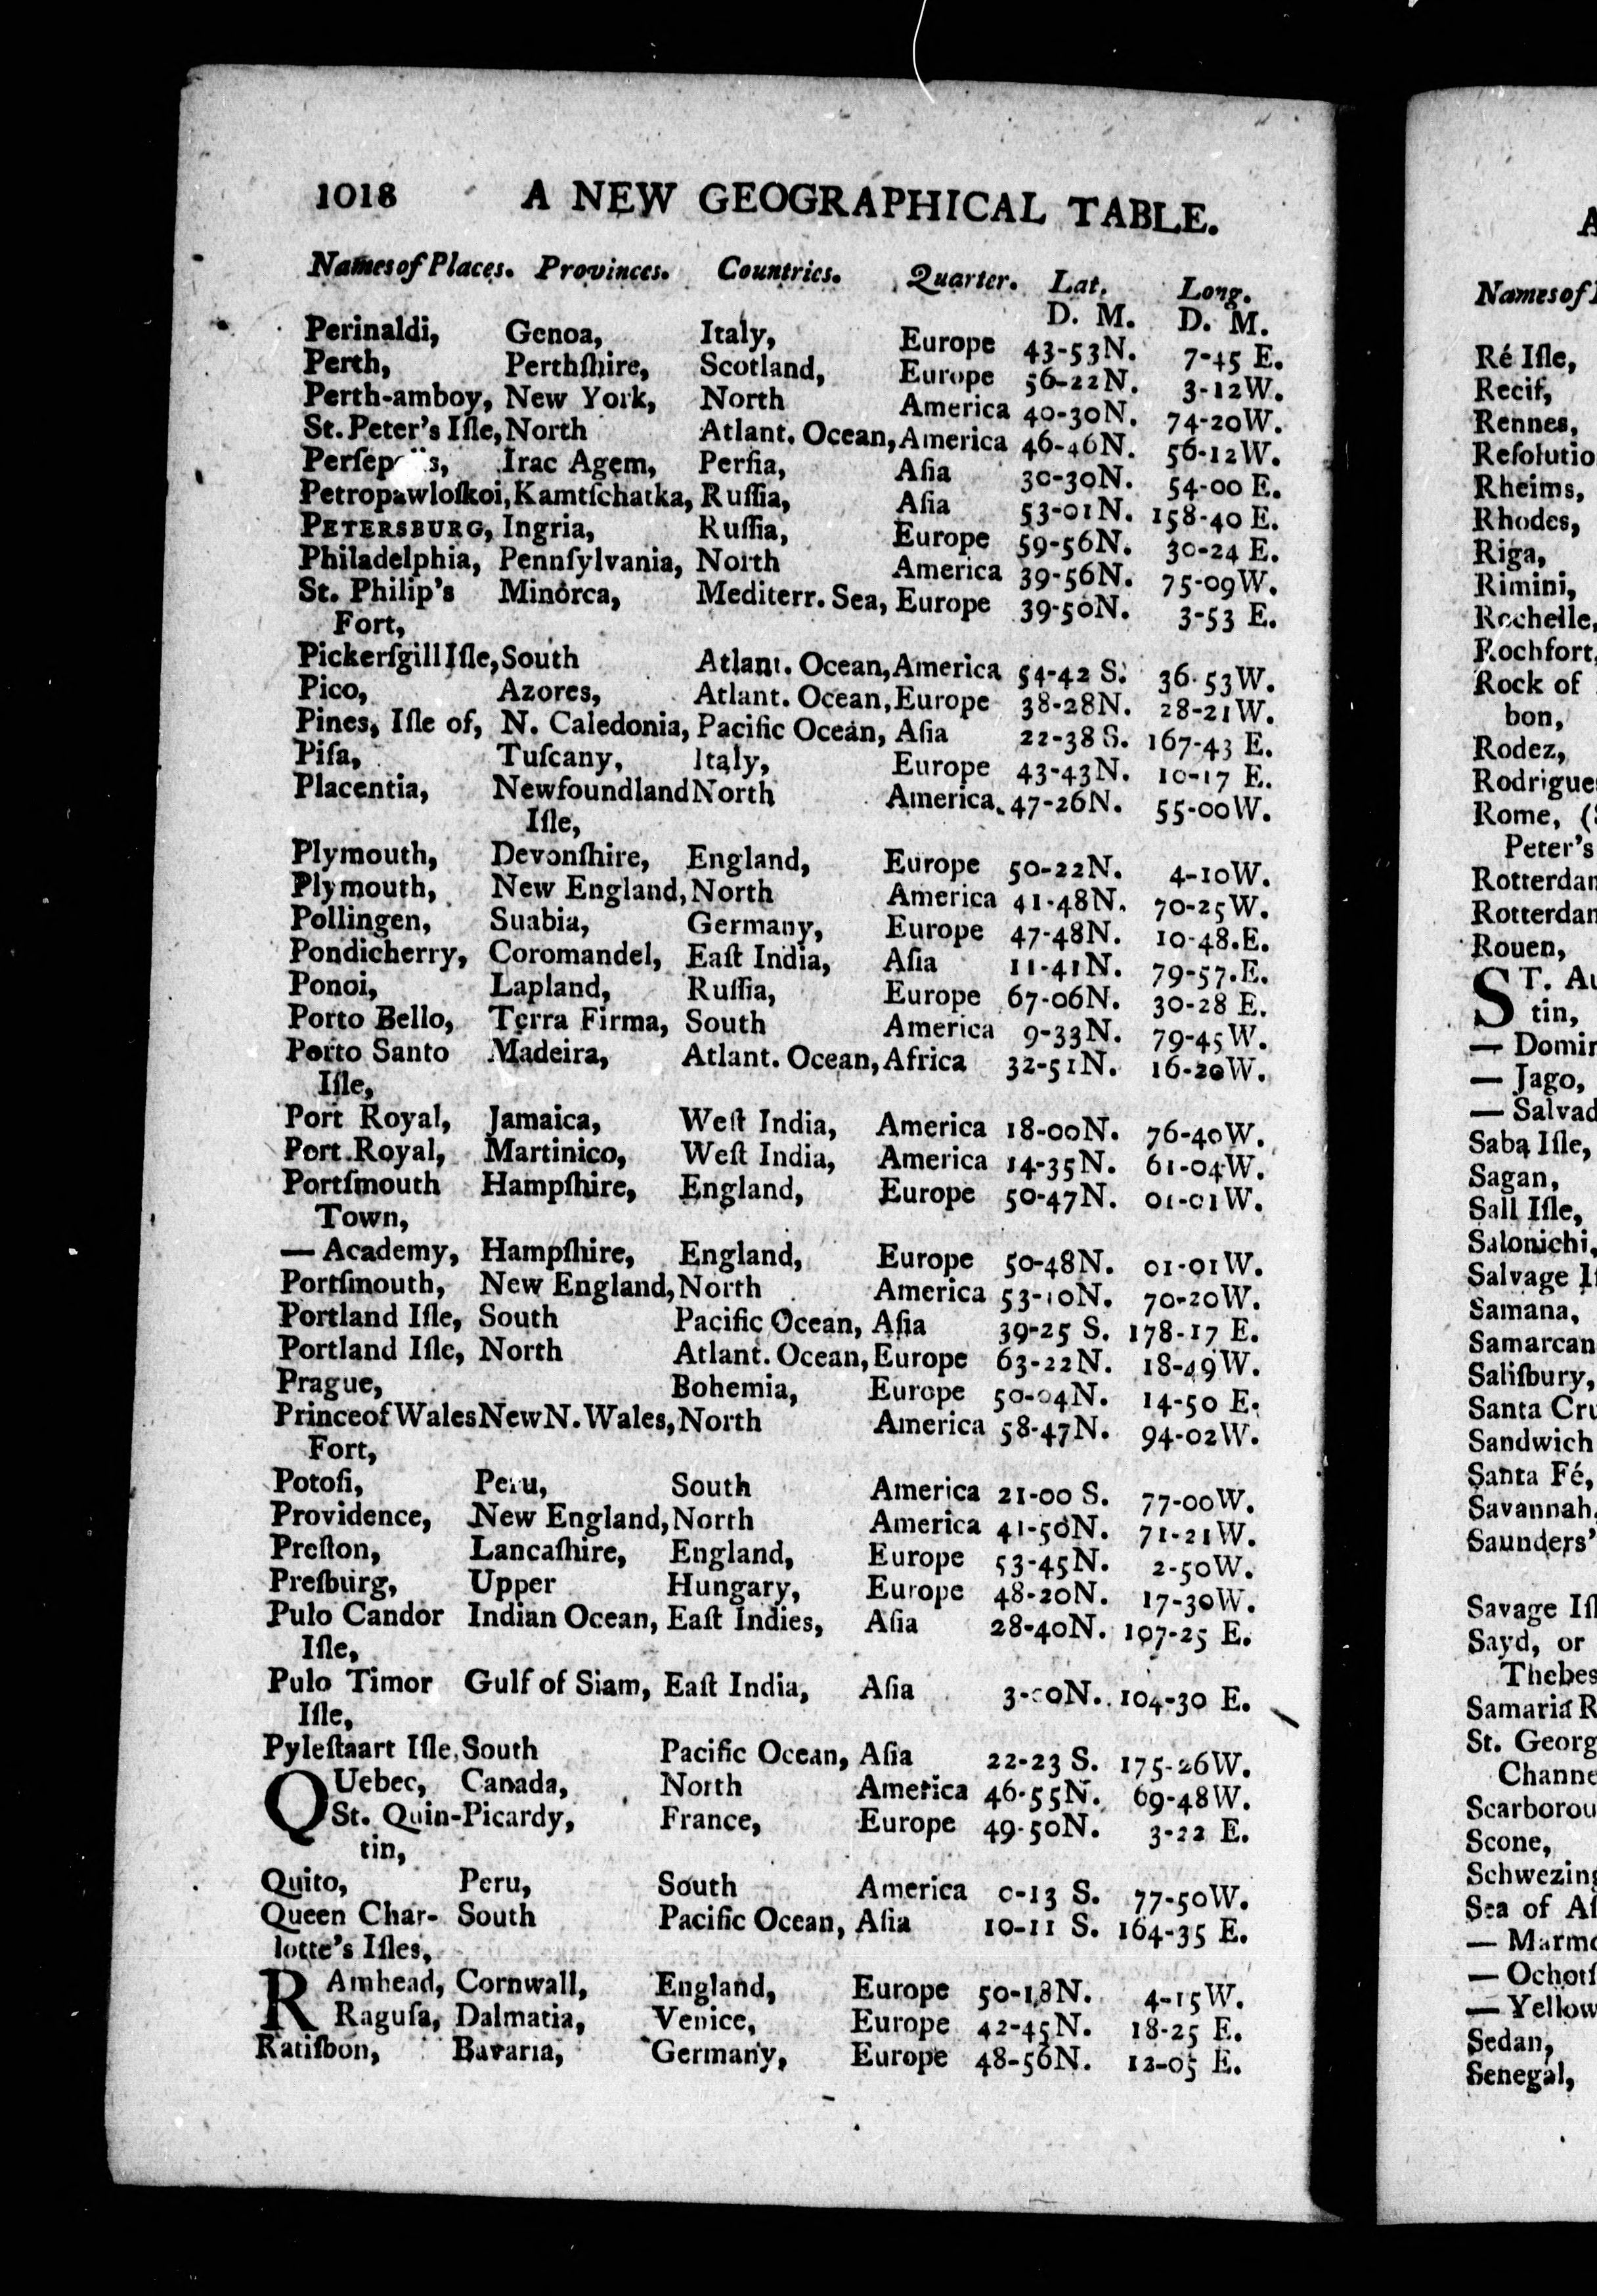 1018 A NEW GEOGRAPHICAL TABLE.
Names of Places. Provinces. Countries. Quarter. Lat. Long.
D. M. D. M.
Perinaldi, Genoa, Italy, Europe 43-53N. 7-45 E.
Perth, Perthſhire, Scotland, Europe 56-22N. 3-12W.
Perth-amboy, New York, North America 40-30N. 74-20W.
St. Peter's Iſle, North Atlant. Ocean, America 46-46N. 56-12W.
Irac Agem, Perſia, Aſia 30-30N. 54-00 E.
Petropawloſkoi, Kamtſchatka, Ruſſia, Aſia 53-01N. 158-40 E.
PETERSBURG, Ingria, Ruſſia, Europe 59-56N. 30-24 E.
Philadelphia, Pennſylvania, North America 39-56N. 75-09W.
St. Philip's Minorca, Mediterr. Sea, Europe 39-50N. 3-53 E.
Fort,
Pickerſgill Iſle, South Atlant. Ocean, America 54-42 S. 36-53W.
Pico, Azores, Atlant. Ocean, Europe 38-28N. 28-21W.
Pines, Iſle of, N. Caledonia, Pacific Ocean, Aſia 22-38 S. 167-43 E.
Piſa, Tuſcany, Italy, Europe 43-43N. 10-17 E.
Placentia, Newfoundland North America. 47-26N. 55-00W.
Iſle,
Plymouth, Devonſhire, England, Europe 50-22N. 4-10W.
Plymouth, New England, North America 41-48N. 70-25W.
Pollingen, Suabia, Germany, Europe 47-48N. 10-48.E.
Pondicherry, Coromandel, Eaſt India, Aſia 11-41N. 79-57.E.
Ponoi, Lapland, Ruſſia, Europe 67-06N. 30-28 E.
Porto Bello, Terra Firma, South America 9-33N. 79-45W.
Porto Santo Madeira, Atlant. Ocean, Africa 32-51N. 16-20W.
Iſle,
Port Royal, Jamaica, Weſt India, America 18-00N. 76-40W.
Port Royal, Martinico, Weſt India, America 14-35N. 61-04W.
Portſmouth Hampſhire, England, Europe 50-47N. 01-01W.
Town,
— Academy, Hampſhire, England, Europe 50-48N. 01-01W.
Portſmouth, New England, North America 53-10N. 70-20W.
Portland Iſle, South Pacific Ocean, Aſia 39-25 S. 178-17 E.
Portland Iſle, North Atlant. Ocean, Europe 63-22N. 18-49W.
Prague, Bohemia, Europe 50-04N. 14-50 E.
Prince of Wales New N. Wales, North America 58-47N. 94-02W.
Fort,
Potoſi, Peru, South America 21-00 S. 77-00W.
Providence, New England, North America 41-50N. 71-21W.
Preſton, Lancaſhire, England, Europe 53-45N. 2-50W.
Preſburg, Upper Hungary, Europe 48-20N. 17-30W.
Pulo Candor Indian Ocean, Eaſt Indies, Aſia 28-40N. 107-25 E.
Iſle,
Pulo Timor Gulf of Siam, Eaſt India, Aſia 3-00N. 104-30 E.
Iſle,
Pyleſtaart Iſle, South Pacific Ocean, Aſia 22-23 S. 175-26W.
QUebec, Canada, North America 46-55N. 69-48W.
St. Quin- Picardy, France, Europe 49-50N. 3-22 E.
tin,
Quito, Peru, South America 0-13 S. 77-50W.
Queen Char- South Pacific Ocean, Aſia 10-11 S. 164-35 E.
lotte's Iſles,
RAmhead, Cornwall, England, Europe 50-18N. 4-15W.
Raguſa, Dalmatia, Venice, Europe 42-45N. 18-25 E.
Ratiſbon, Bavaria, Germany, Europe 48-56N. 12-05 E.
A
Names of
Ré Iſle,
Recif,
Rennes,
Reſolutio
Rheims,
Rhodes,
Riga,
Rimini,
Rochelle,
Rochfort,
Rock of
bon,
Rodez,
Rodrigue
Rome, (
Peter's
Rotterdam
Rotterdam
Rouen,
ST. Au
tin,
— Domin
— Jago,
— Salvad
Saba Iſle,
Sagan,
Sall Iſle,
Salonichi,
Salvage I
Samana,
Samarcan
Saliſbury,
Santa Cru
Sandwich
Santa Fé,
Savannah,
Saunders'
Savage Iſl
Sayd, or
Thebes
Samaria R
St. Georg
Channe
Scarborou
Scone,
Schwezing
Sea of Aſ
— Marmo
— Ochotſ
— Yellow
Sedan,
Senegal,